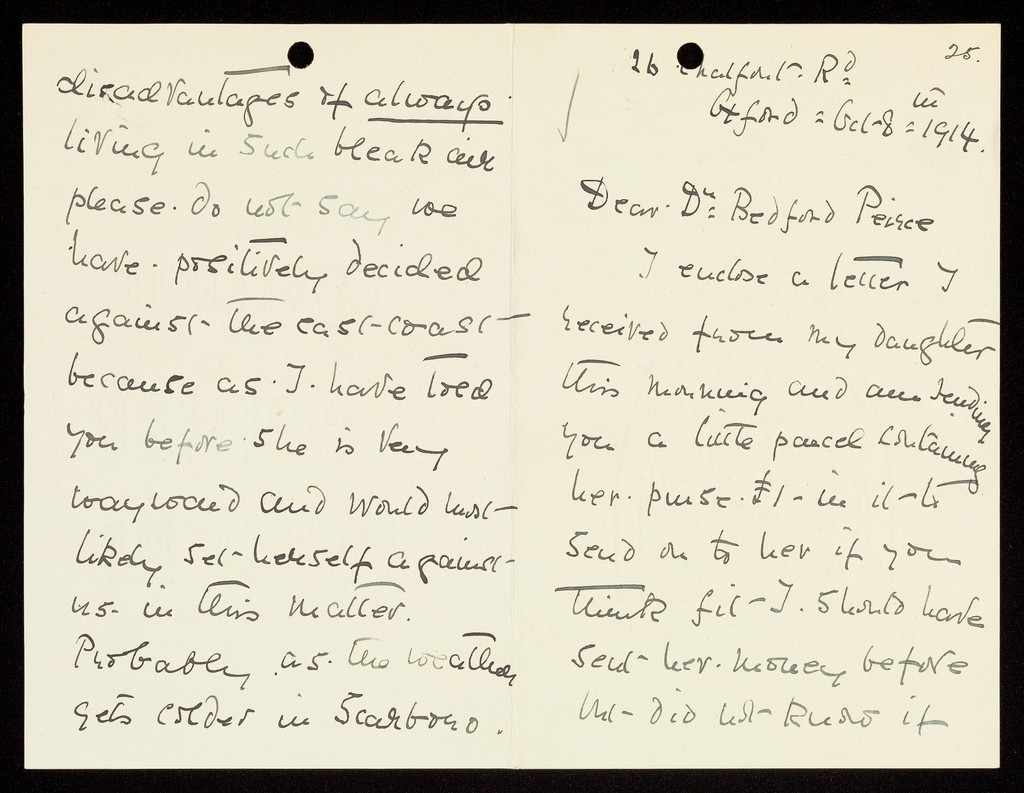 25.
26 Chalfont Rd
Oxford = Oct 8th = 1914.
Dear Dr Bedford Peirce
I enclose a letter I
received from my daughter
this morning and am sending
you a little parcel containing
her purse. £1 - in it - to
send on to her if you
think fit - I. should have
sent her. money before
but did not know if
disadvantages of always
living in such bleak air
please. do not say we
have. positively decided
against the east-coast -
because as. I. have told
you before she is very
wayward and would most
likely set herself against
us. in this matter.
Probably. as. the weather
gets colder in Scarboro.